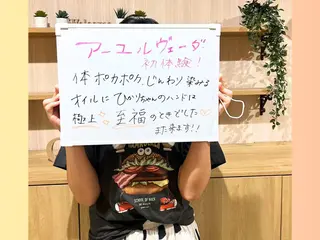 アーユルヴェーダ
初体験！
体ポカポカ。じんわり染みる
オイルにひかりちゃんのハンドは
極上 至福のときでした
また来ます!!